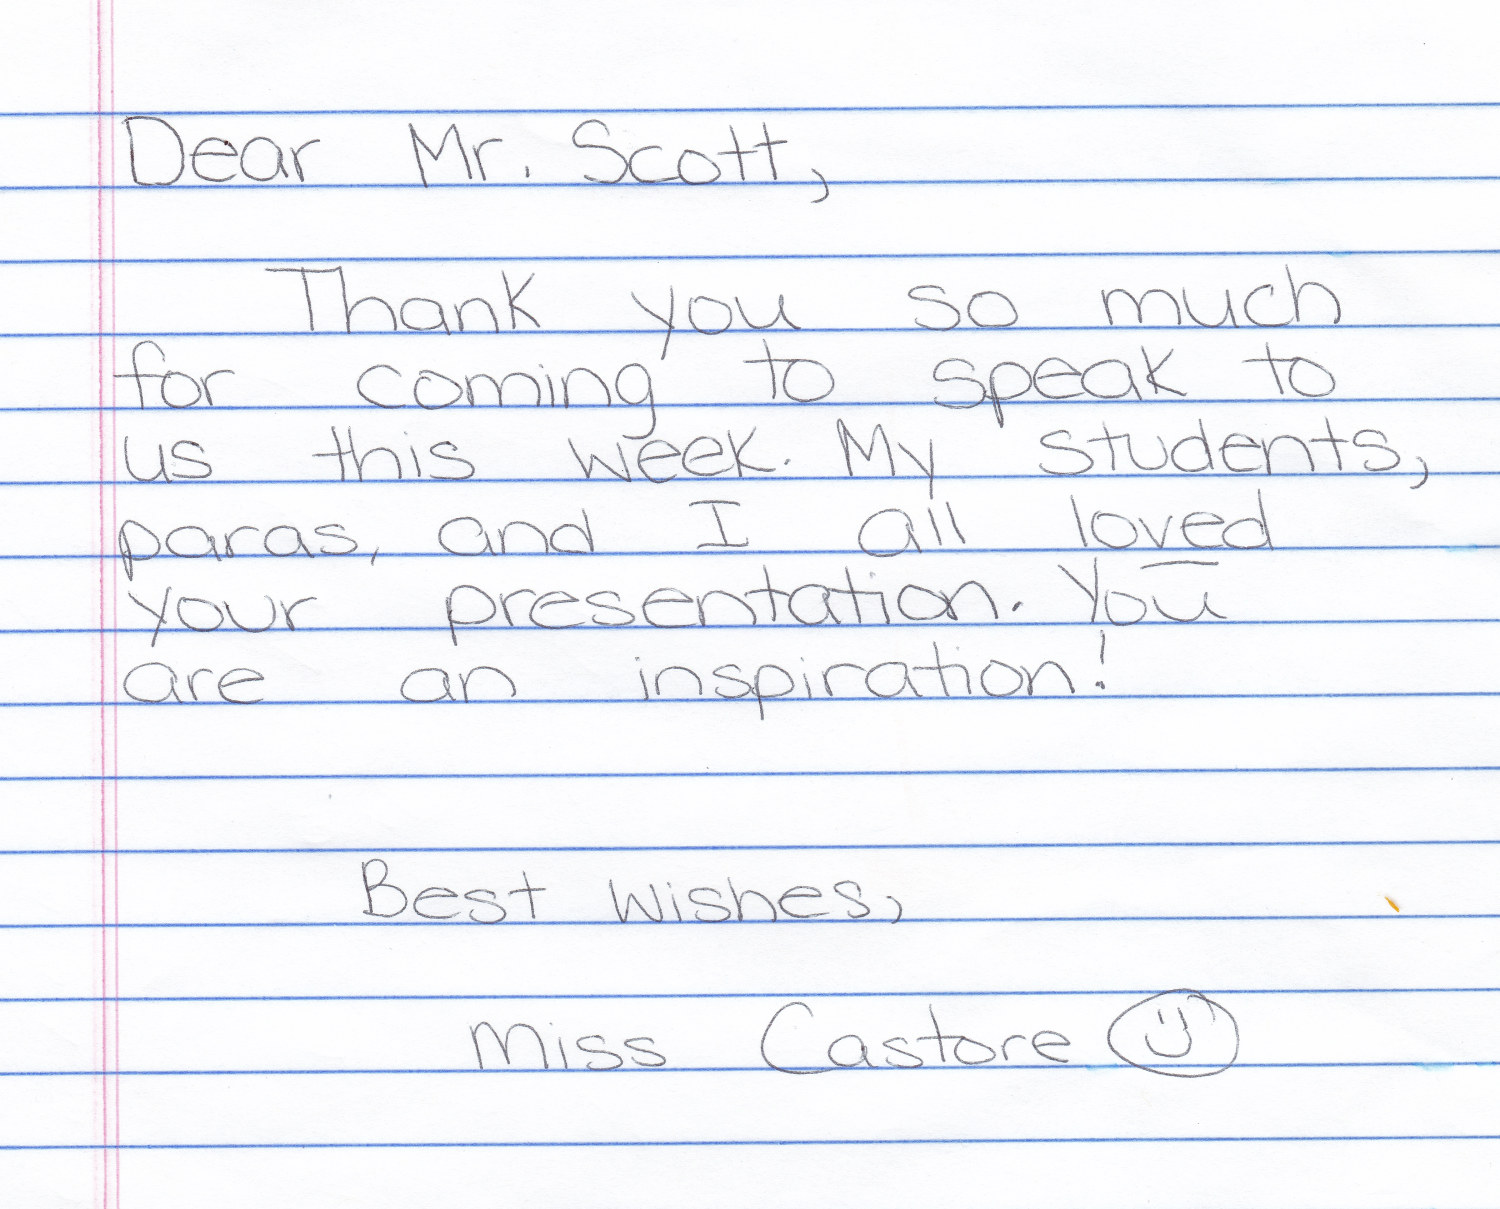 Dear Mr. Scott,
Thank you so much
for coming to speak to
us this week. My students,
paras, and I all loved
your presentation. You
are an inspiration!
Best Wishes,
Miss Castore